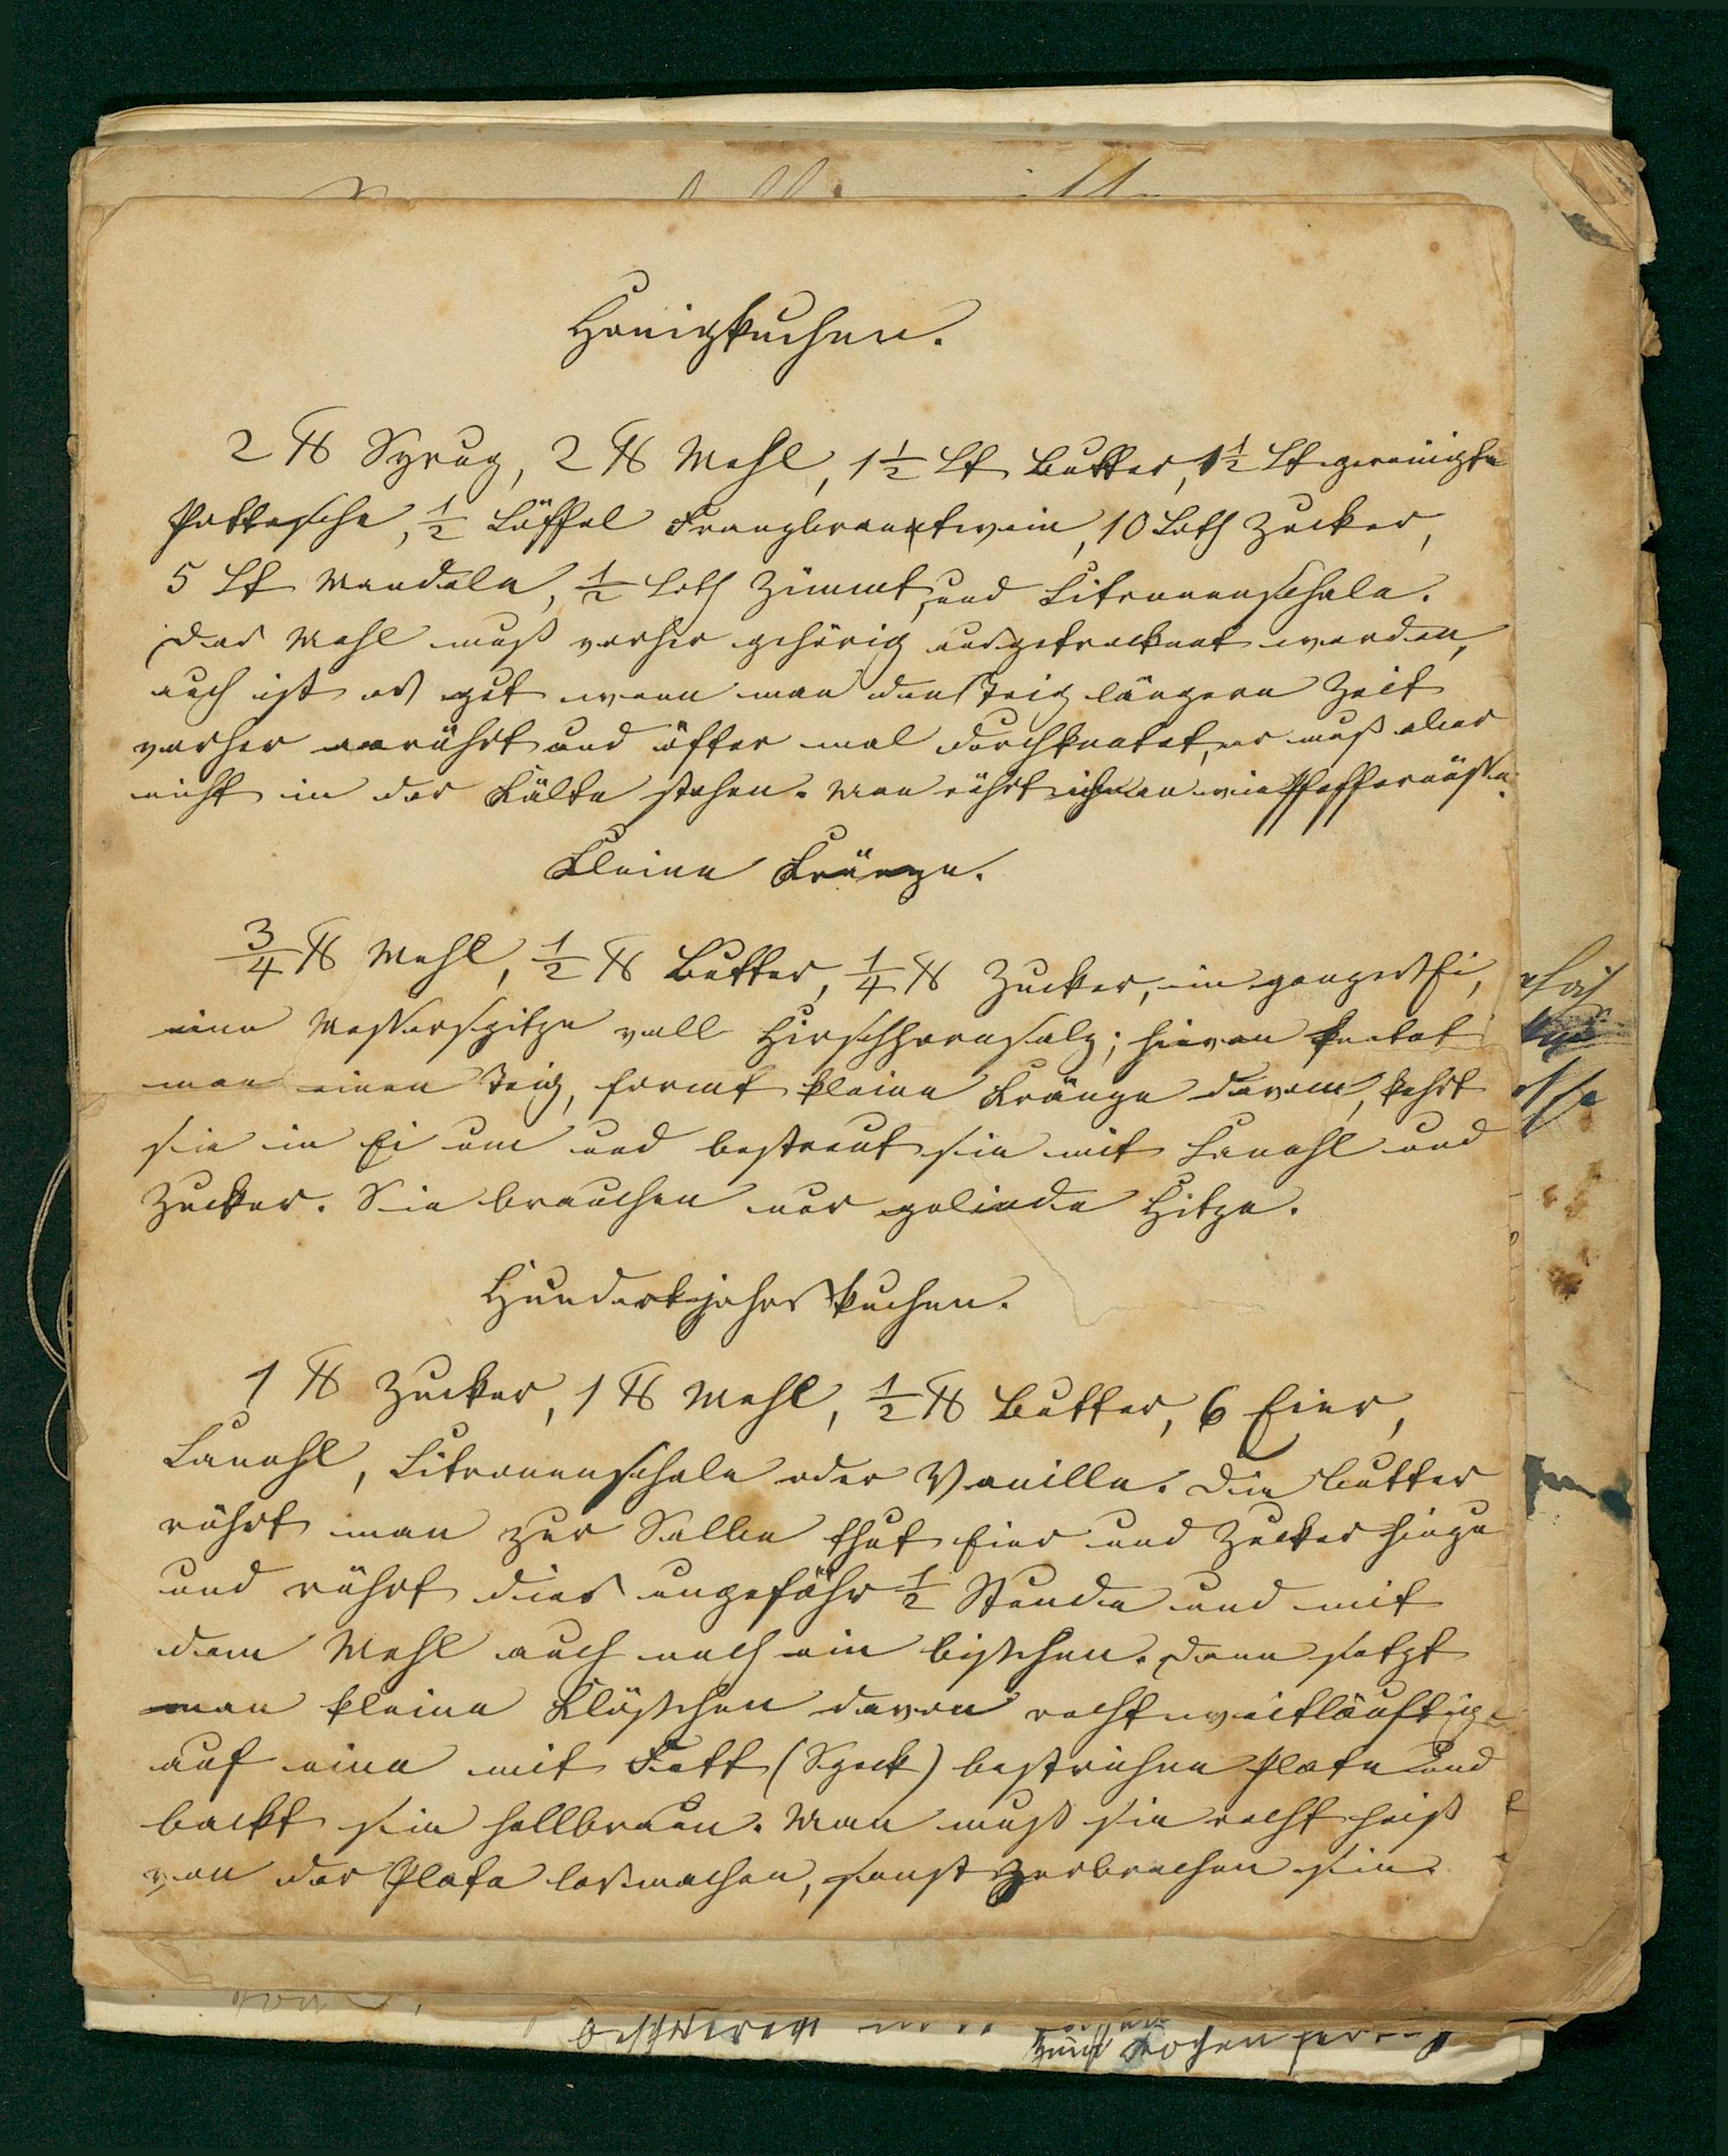 Honigkuchen.
2 ℔ Syrup, 2 ℔ Mehl, 1 1/2 Lt Butter, 1 1/2 Lt gereinigte
Pottasche, 1/2 Löffel Franzbranntwein, 10 Loth Zucker,
5 Lt Mandeln, 1/2 Loth Zimmt, und Citronenschale.
Das Mehl muß vorher gehörig ausgetrocknet werden,
auch ist es gut wenn man den Teig längere Zeit
vorher anrührt und öfter mal durchknetet, er muß aber
nicht in der Kälte stehen. Man rührt ihn an wie Pfeffernüsse.
Kleine Kränze.
3/4 ℔ Mehl, 1/2 ℔ Butter, 1/4 ℔ Zucker, ein ganzes Ei,
eine Messerspitze voll Hirschhornsalz; hievon knetet
man einen Teig, formt kleine Kränze davon, kehrt
sie in Ei um und bestreut sie mit Canehl und
Zucker. Sie brauchen nur gelinde Hitze.
Hundertjahrskuchen.
1 ℔ Zucker, 1 ℔ Mehl, 1/2 ℔ Butter, 6 Eier,
Canehl, Citronenschale oder Vanille. Die Butter
rührt man zur Salbe thut Eier und Zucker hinzu
und rührt dies ungefähr 1/2 Stunde und mit
dem Mehl auch noch ein bißchen. Dann setzt
man kleine Klößchen davon recht weitläuftig
auf eine mit Fett (Speck) bestrichne Plate und
backt sie hellbraun. Man muß sie recht heiß
von der Plate losmachen, sonst zerbrechen sie.
zum Kochen